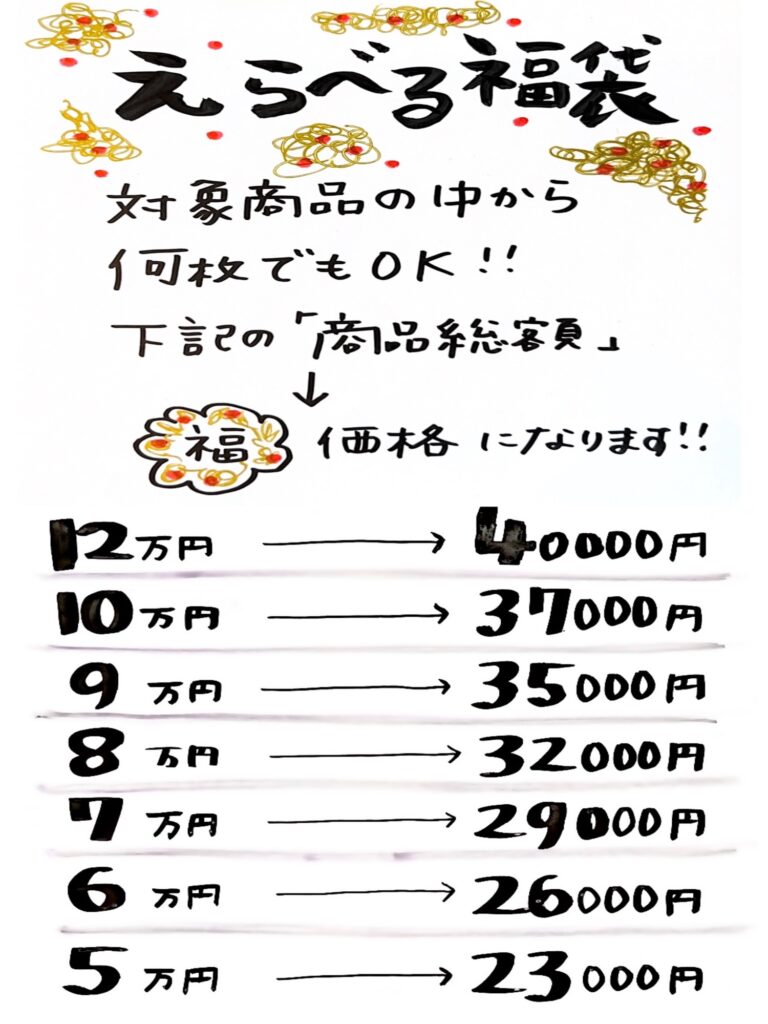 えらべる福袋
対象商品の中から
何枚でもOK!!
下記の「商品総額」
↓
福 価格になります!!
12万円 → 40000円
10万円 → 37000円
9万円 → 35000円
8万円 → 32000円
7万円 → 29000円
6万円 → 26000円
5万円 → 23000円